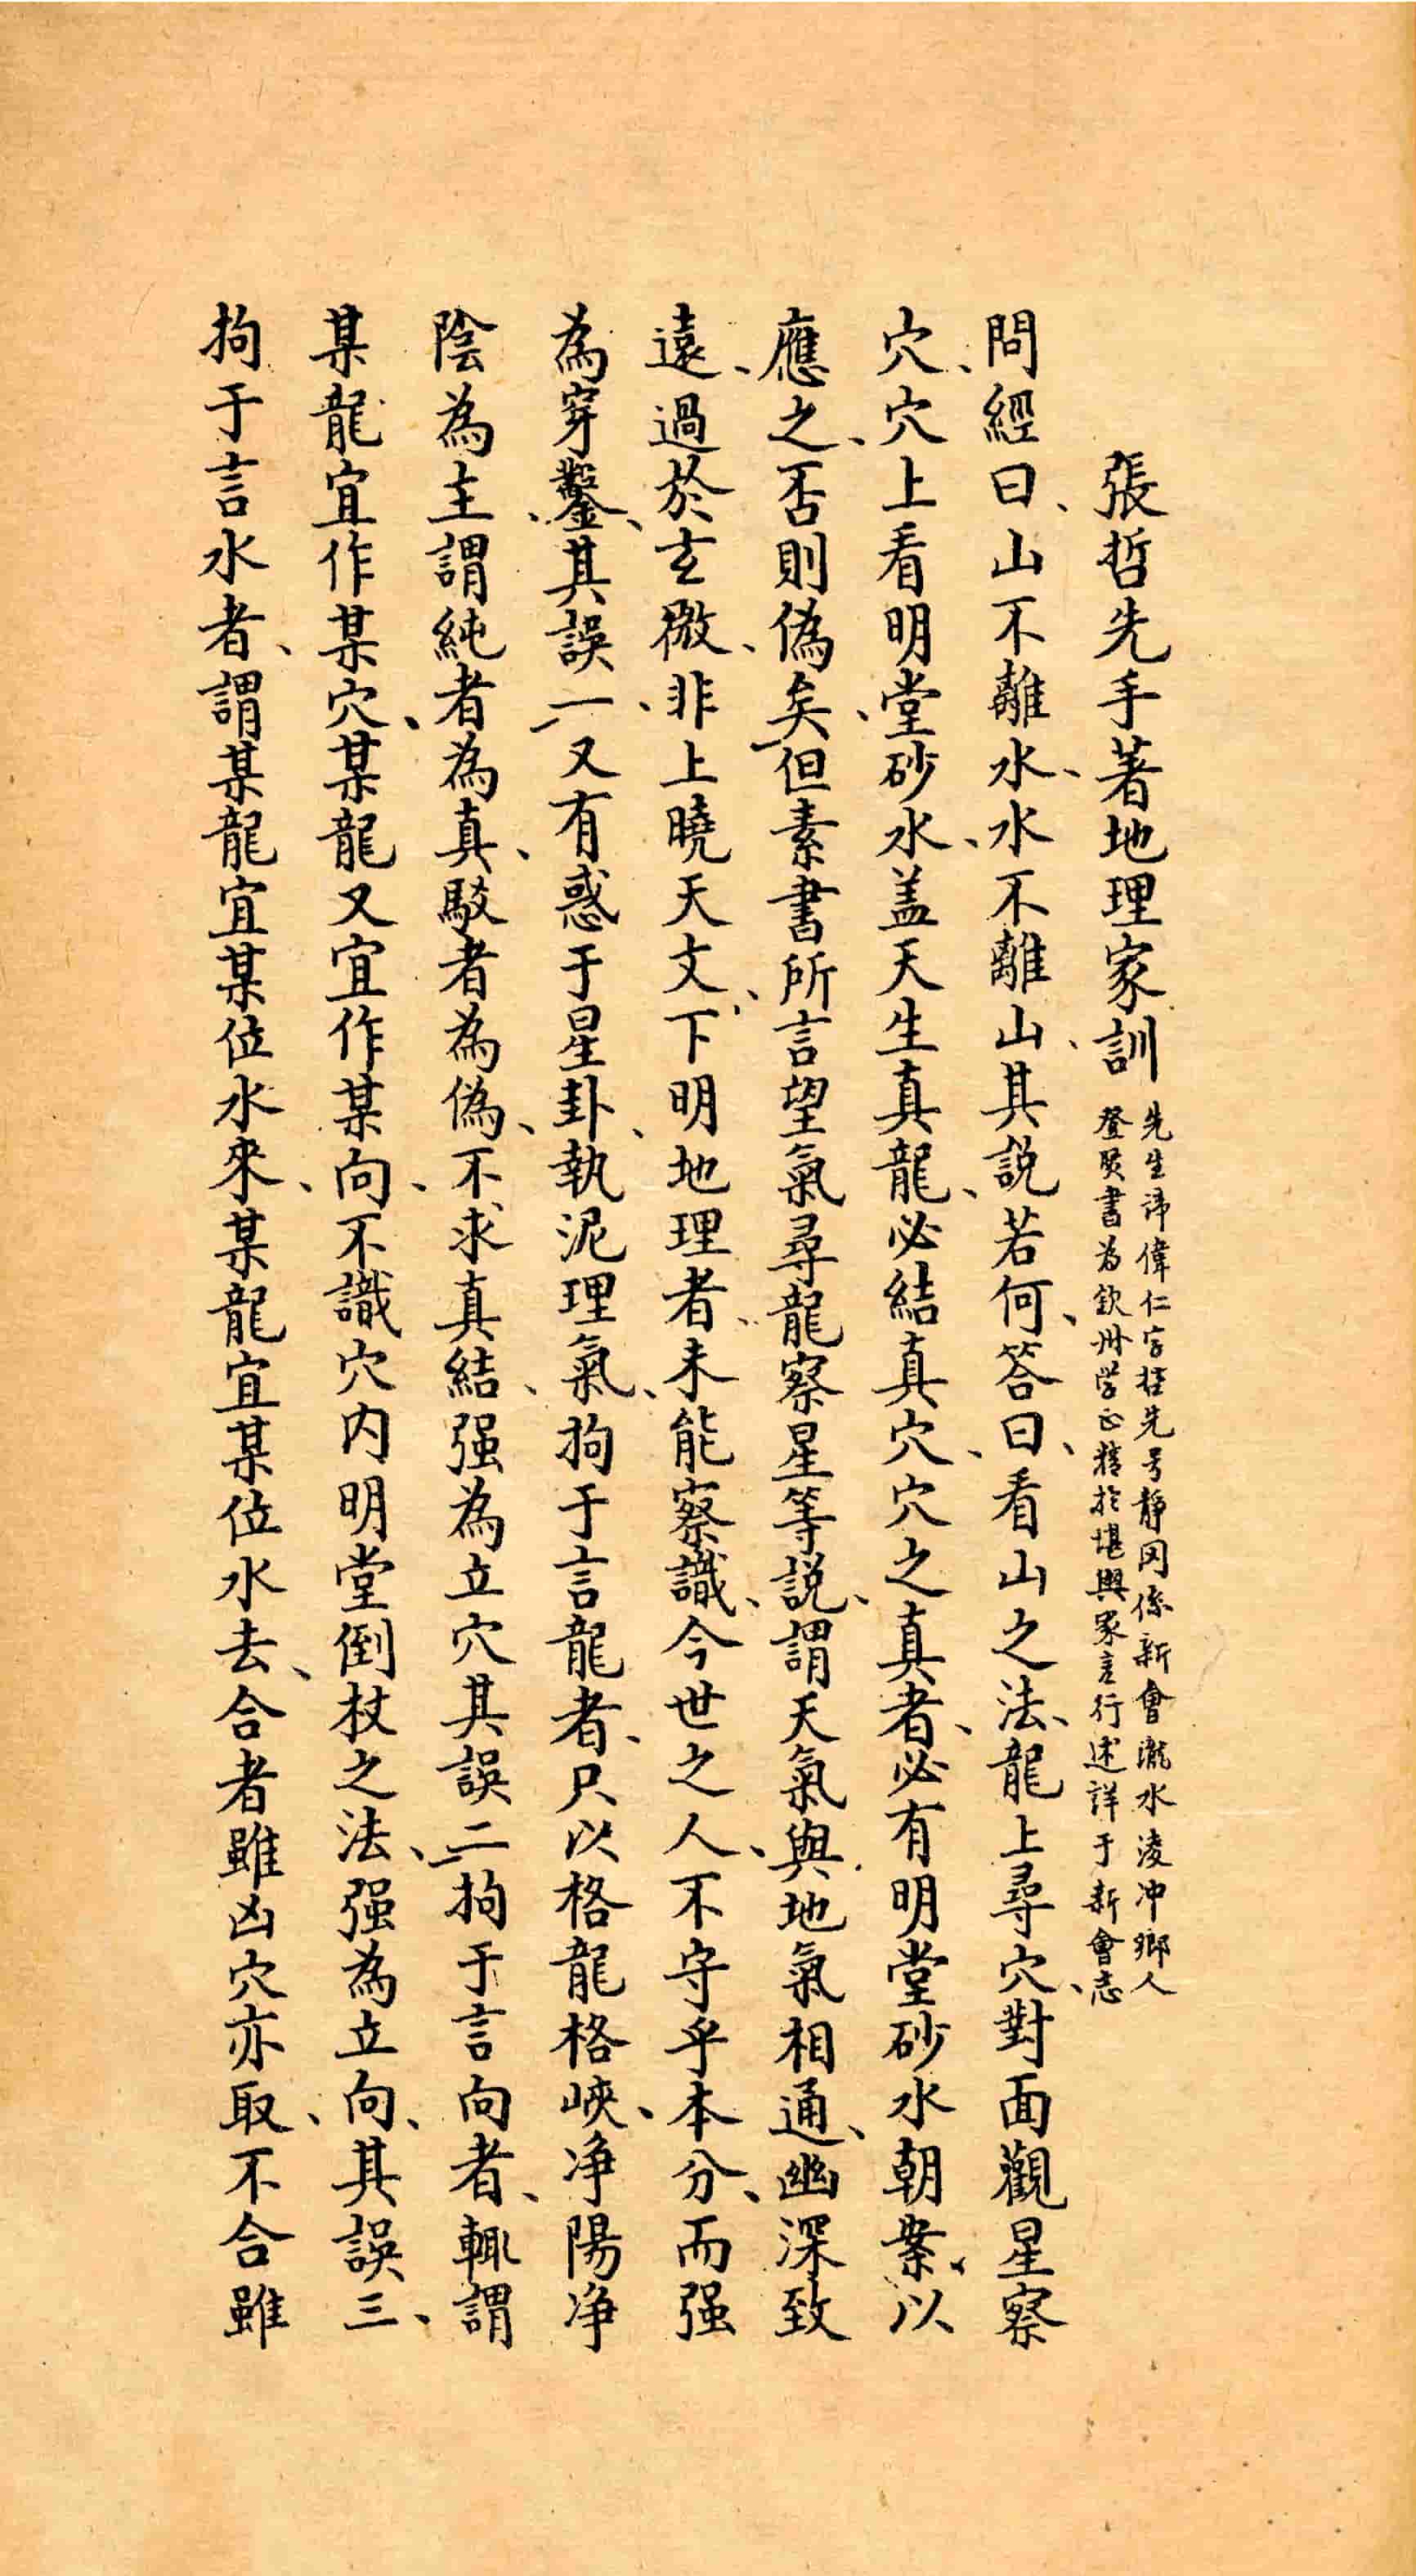 張哲先手著地理家訓
先生諱偉仁字哲先号靜岡係新會瀧水凌冲鄉人
登賢書為欽州学正精於堪輿家言行述詳于新會志
問經曰、山不離水、水不離山、其説若何、答曰、看山之法、龍上尋穴、對面觀星察
穴、穴上看明堂砂水、盖天生真龍、必結真穴、穴之真者、必有明堂砂水朝案、以
應之、否則偽矣、但素書所言望氣尋龍察星等説、謂天氣與地氣相通、幽深致
遠、過於玄微、非上曉天文、下明地理者、未能察識、今世之人、不守乎本分、而强
為穿鑿、其誤一、又有惑于星卦、執泥理氣、拘于言龍者、只以格龍格峽、净陽净
陰為主、謂純者為真、駁者為偽、不求真結、强為立穴其誤二拘于言向者、輒謂
某龍宜作某穴、某龍又宜作某向、不識穴内明堂倒杖之法、强為立向、其誤三、
拘于言水者、謂某龍宜某位水來、某龍宜某位水去、合者雖凶穴亦取、不合雖